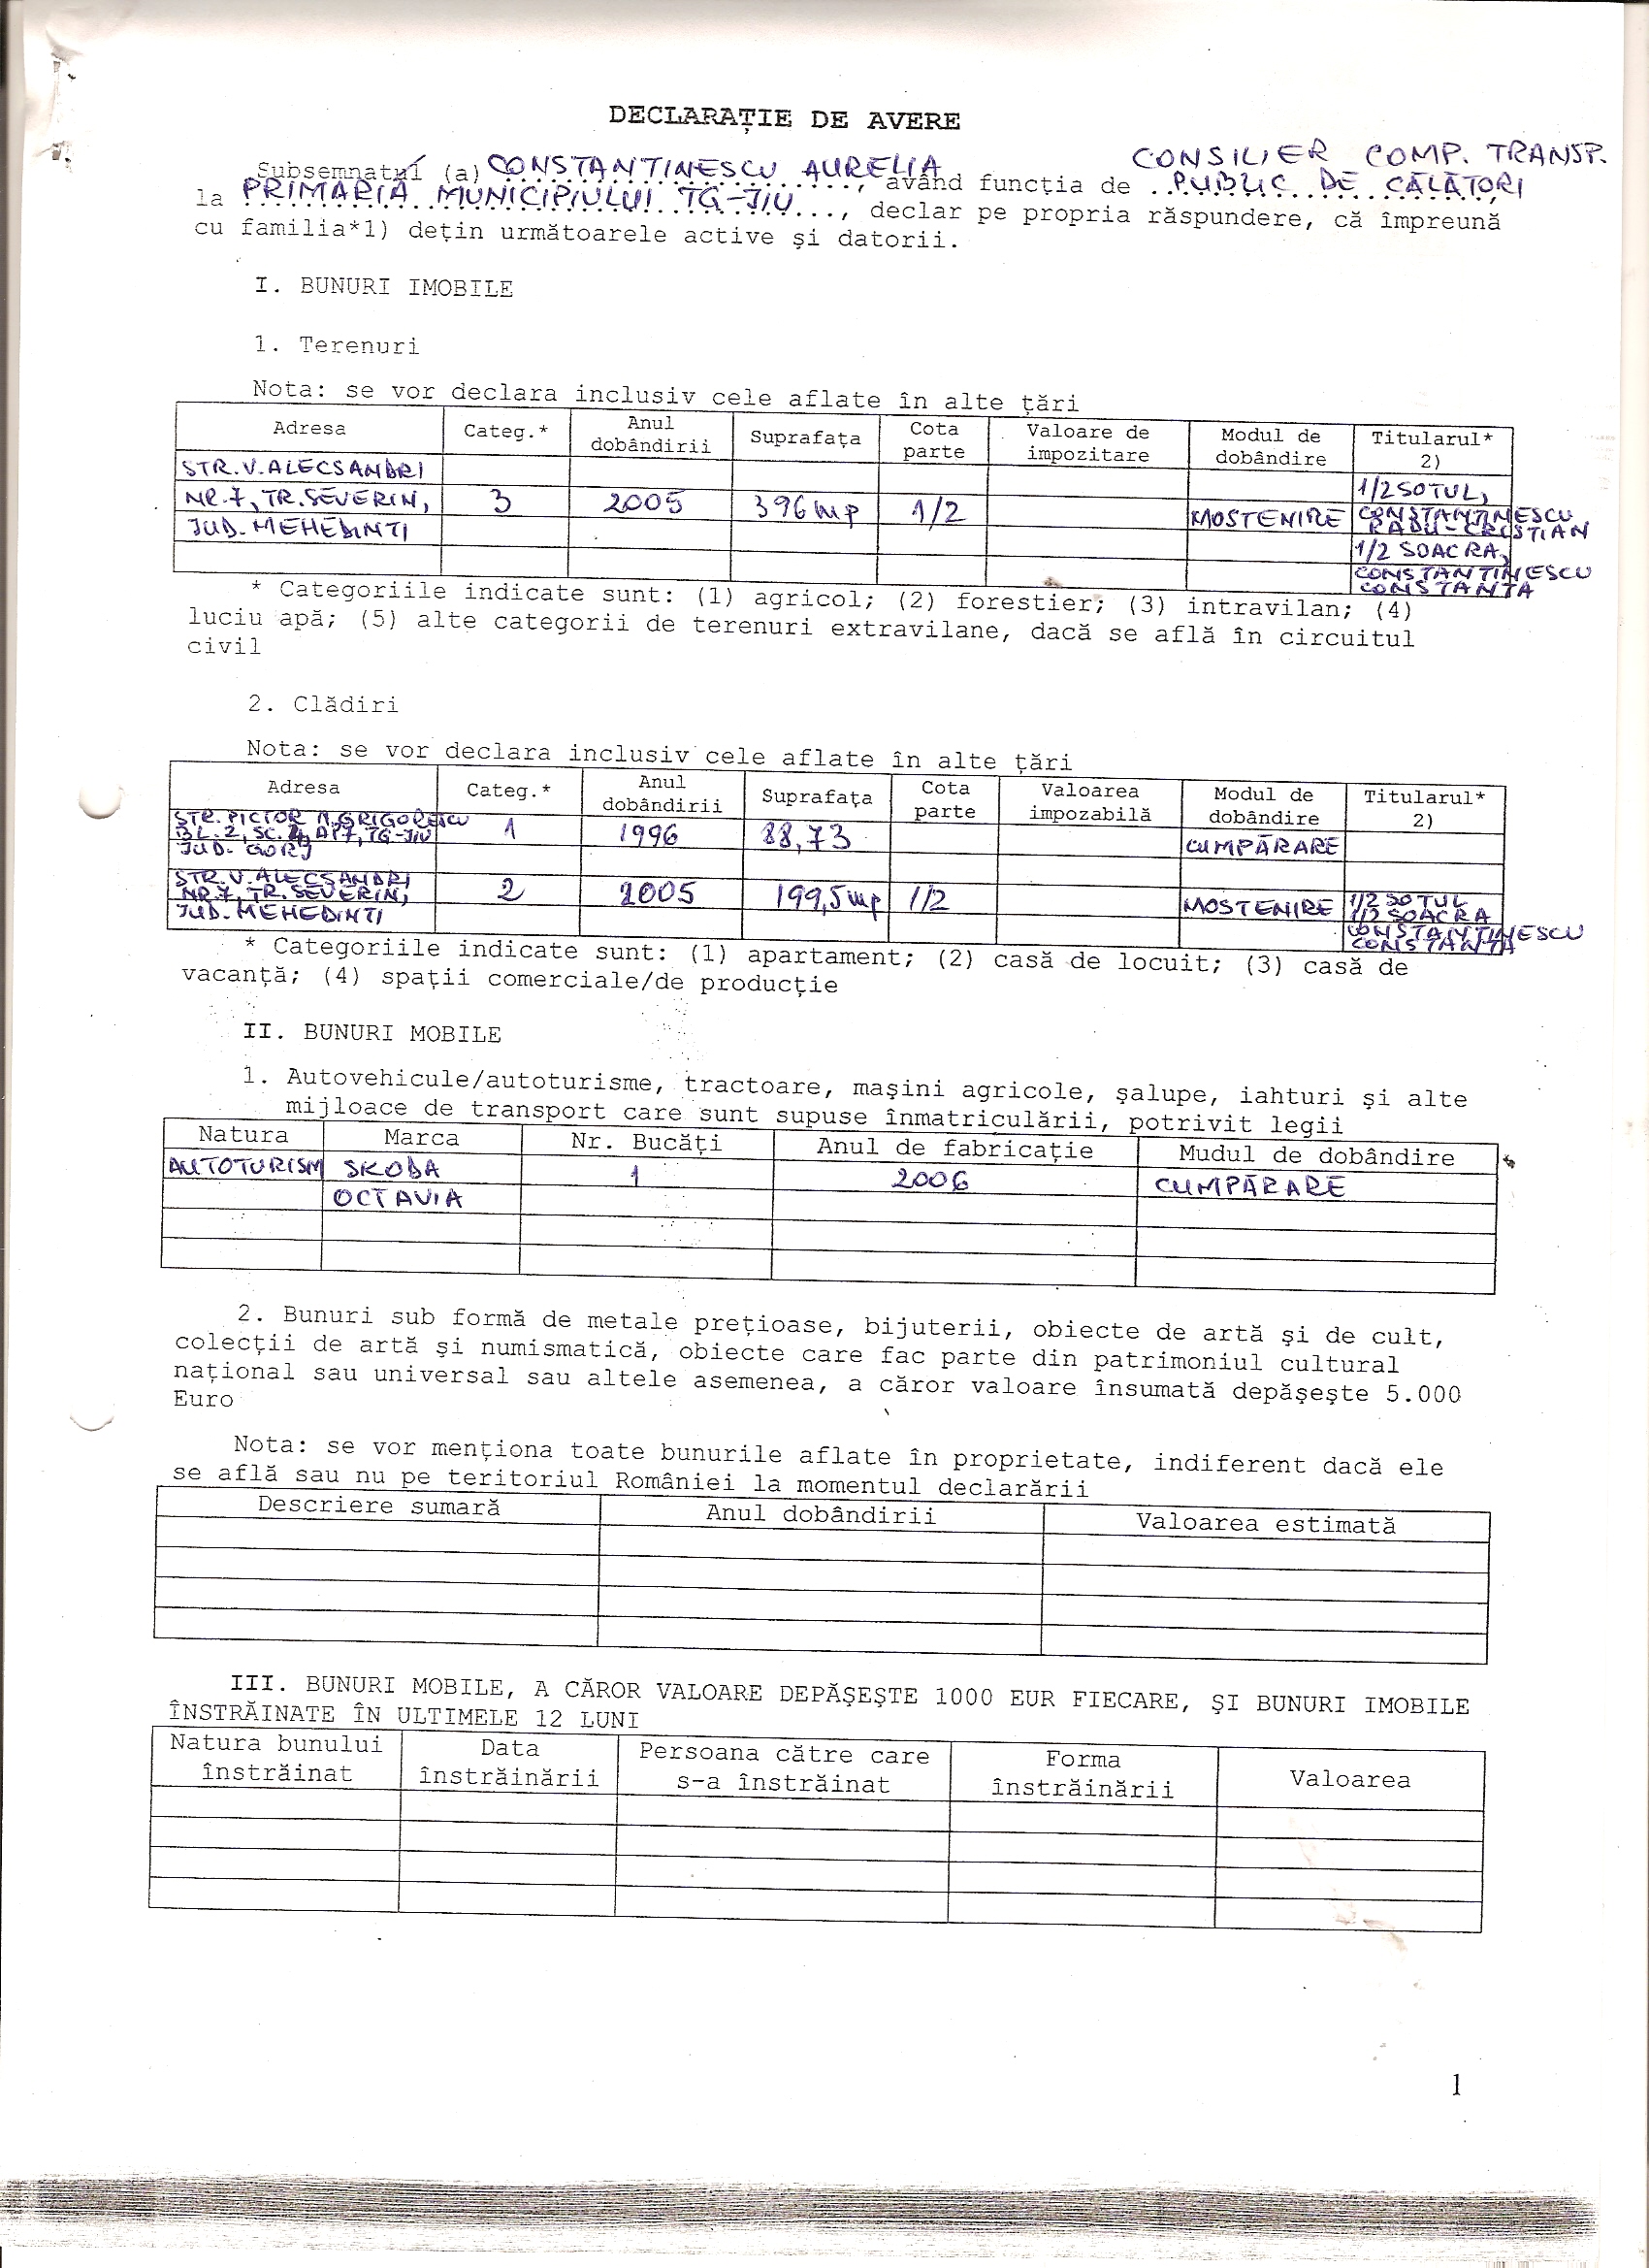 DECLARAŢIE DE AVERE
CONSILIER COMP. TRANSP.
Subsemnatul (a) CONSTANTINESCU AURELIA, având funcţia de PUBLIC DE CĂLĂTORI
la PRIMARIA MUNICIPIULUI TG-JIU, declar pe propria răspundere, că împreună
cu familia*1) deţin următoarele active şi datorii.
I. BUNURI IMOBILE
1. Terenuri
Nota: se vor declara inclusiv cele aflate în alte ţări
Adresa Categ.* Anul dobândirii Suprafaţa Cota parte Valoare de impozitare Modul de dobândire Titularul* 2)
STR. V. ALECSANDRI
NR. 7, TR. SEVERIN, 3 2005 396 mp 1/2 MOSTENIRE 1/2 SOTUL,
JUD. MEHEDINTI CONSTANTINESCU
RADU-CRISTIAN
1/2 SOACRA,
CONSTANTINESCU
CONSTANTA
* Categoriile indicate sunt: (1) agricol; (2) forestier; (3) intravilan; (4)
luciu apă; (5) alte categorii de terenuri extravilane, dacă se află în circuitul
civil
2. Clădiri
Nota: se vor declara inclusiv cele aflate în alte ţări
Adresa Categ.* Anul dobândirii Suprafaţa Cota parte Valoarea impozabilă Modul de dobândire Titularul* 2)
STR. PICTOR N. GRIGORESCU
BL. 2, SC. AP 7, TG-JIU 1 1996 88,73 CUMPĂRARE
JUD. GORJ
STR. V. ALECSANDRI
NR. 7, TR. SEVERIN, 2 2005 199,5 mp 1/2 MOSTENIRE 1/2 SOTUL
JUD. MEHEDINTI 1/2 SOACRA
CONSTANTINESCU
CONSTANTA
* Categoriile indicate sunt: (1) apartament; (2) casă de locuit; (3) casă de
vacanţă; (4) spaţii comerciale/de producţie
II. BUNURI MOBILE
1. Autovehicule/autoturisme, tractoare, maşini agricole, şalupe, iahturi şi alte
mijloace de transport care sunt supuse înmatriculării, potrivit legii
Natura Marca Nr. Bucăţi Anul de fabricaţie Mudul de dobândire
AUTOTURISM SKODA 1 2006 CUMPĂRARE
OCTAVIA
2. Bunuri sub formă de metale preţioase, bijuterii, obiecte de artă şi de cult,
colecţii de artă şi numismatică, obiecte care fac parte din patrimoniul cultural
naţional sau universal sau altele asemenea, a căror valoare însumată depăşeşte 5.000
Euro
Nota: se vor menţiona toate bunurile aflate în proprietate, indiferent dacă ele
se află sau nu pe teritoriul României la momentul declarării
Descriere sumară Anul dobândirii Valoarea estimată
III. BUNURI MOBILE, A CĂROR VALOARE DEPĂŞEŞTE 1000 EUR FIECARE, ŞI BUNURI IMOBILE
ÎNSTRĂINATE ÎN ULTIMELE 12 LUNI
Natura bunului înstrăinat Data înstrăinării Persoana către care s-a înstrăinat Forma înstrăinării Valoarea
1